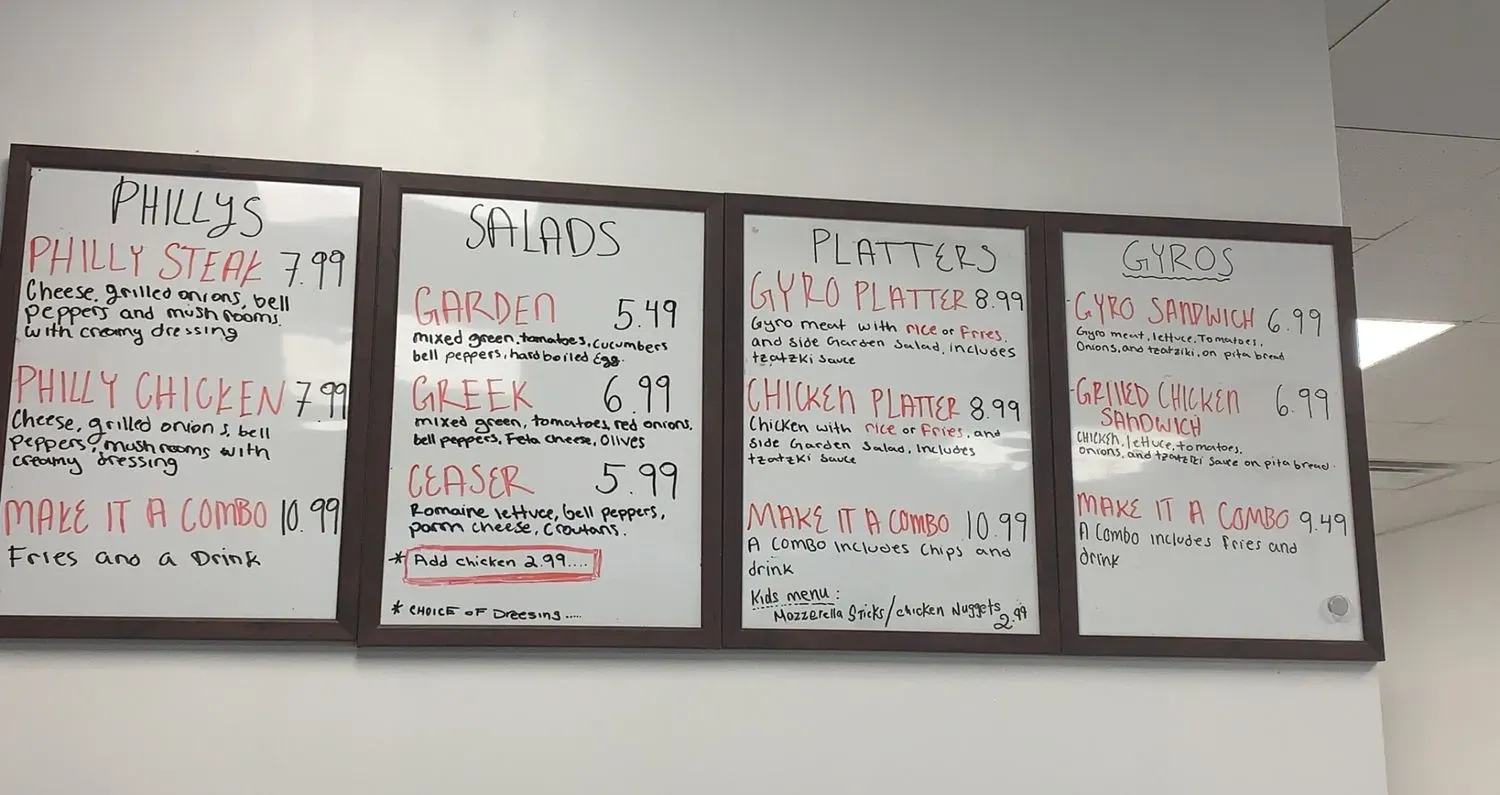 PHILLYS
PHILLY STEAK 7.99
Cheese, grilled onions, bell
peppers and mushrooms.
with creamy dressing
PHILLY CHICKEN 7.99
Cheese, grilled onions, bell
peppers, mushrooms with
creamy dressing
MAKE IT A COMBO 10.99
Fries and a Drink
SALADS
GARDEN 5.49
mixed green, tomatoes, cucumbers
bell peppers, hard boiled Egg.
GREEK 6.99
mixed green, tomatoes, red onions,
bell peppers, Feta cheese, Olives
CEASER 5.99
Romaine lettuce, bell peppers,
parm cheese, Croutans.
* Add chicken 2.99....
* CHOICE OF Dreesing.....
PLATTERS
GYRO PLATTER 8.99
Gyro meat with rice or Fries,
and side Garden Salad, includes
tzatzki sauce
CHICKEN PLATTER 8.99
Chicken with rice or Fries, and
Side Garden Salad, Includes
tzatzki sauce
MAKE IT A COMBO 10.99
A Combo includes Chips and
drink
Kids menu:
Mozzerella Sticks/chicken Nuggets 2.99
GYROS
-GYRO SANDWICH 6.99
Gyro meat, lettuce, Tomatoes,
Onions, and tzatziki, on pita bread
-GRILLED CHICKEN 6.99
SANDWICH
CHICKEN, lettuce, tomatoes,
onions, and tzatziki sauce on pita bread.
MAKE IT A COMBO 9.49
A Combo includes fries and
drink